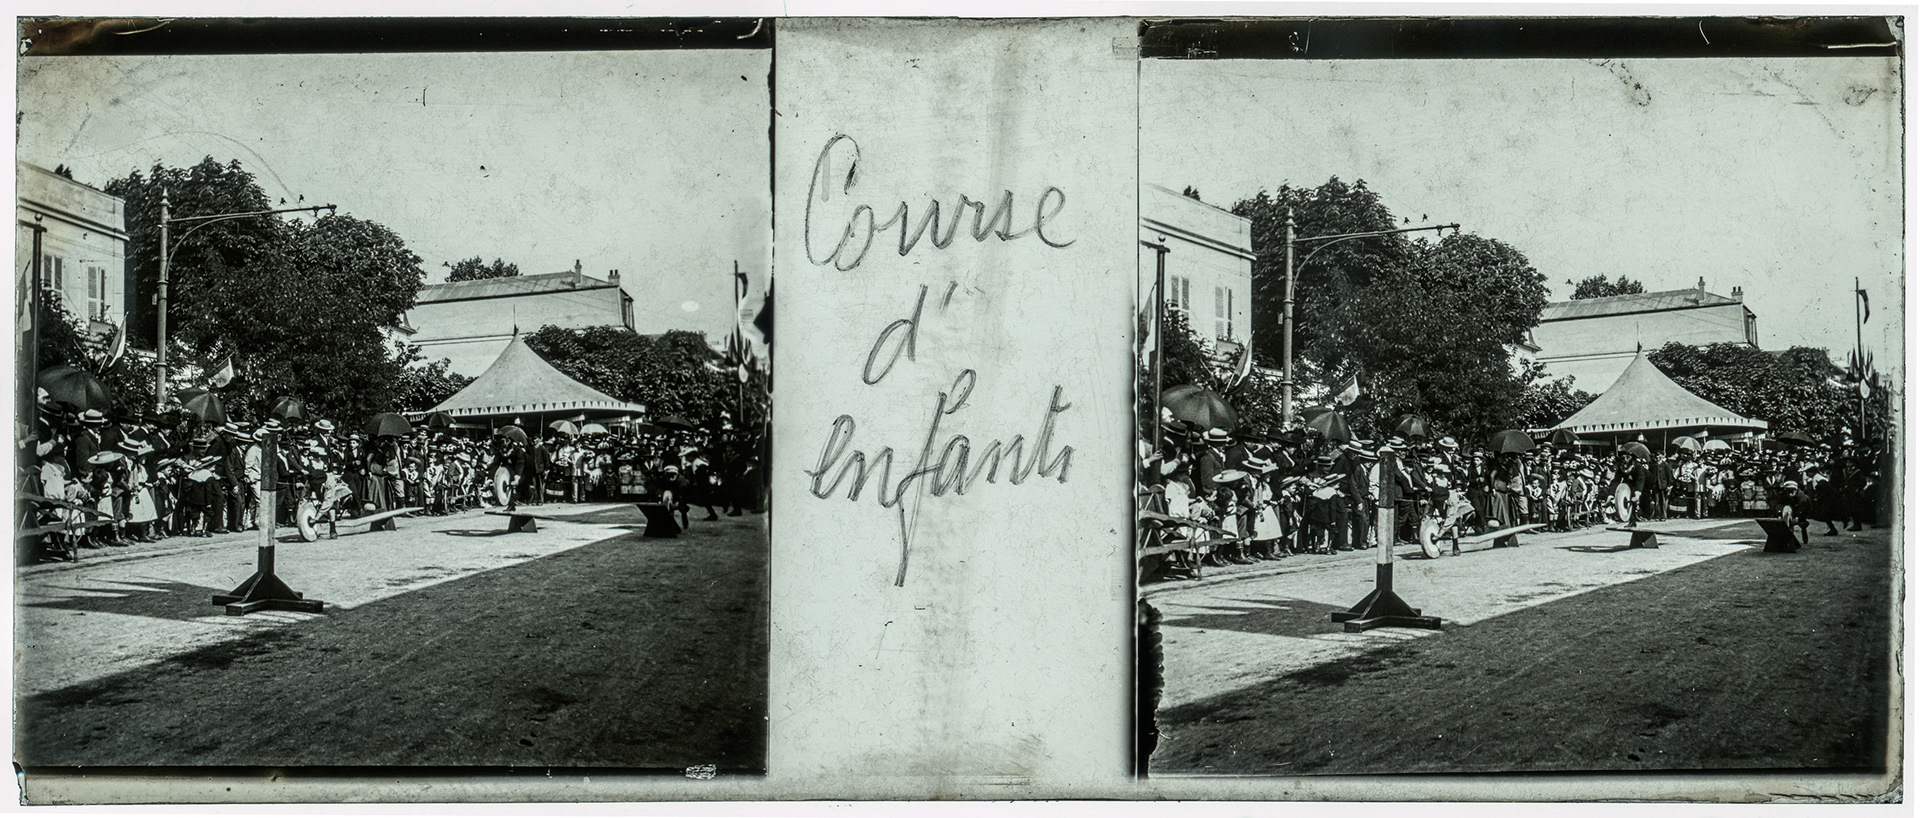 Course
d'
enfants